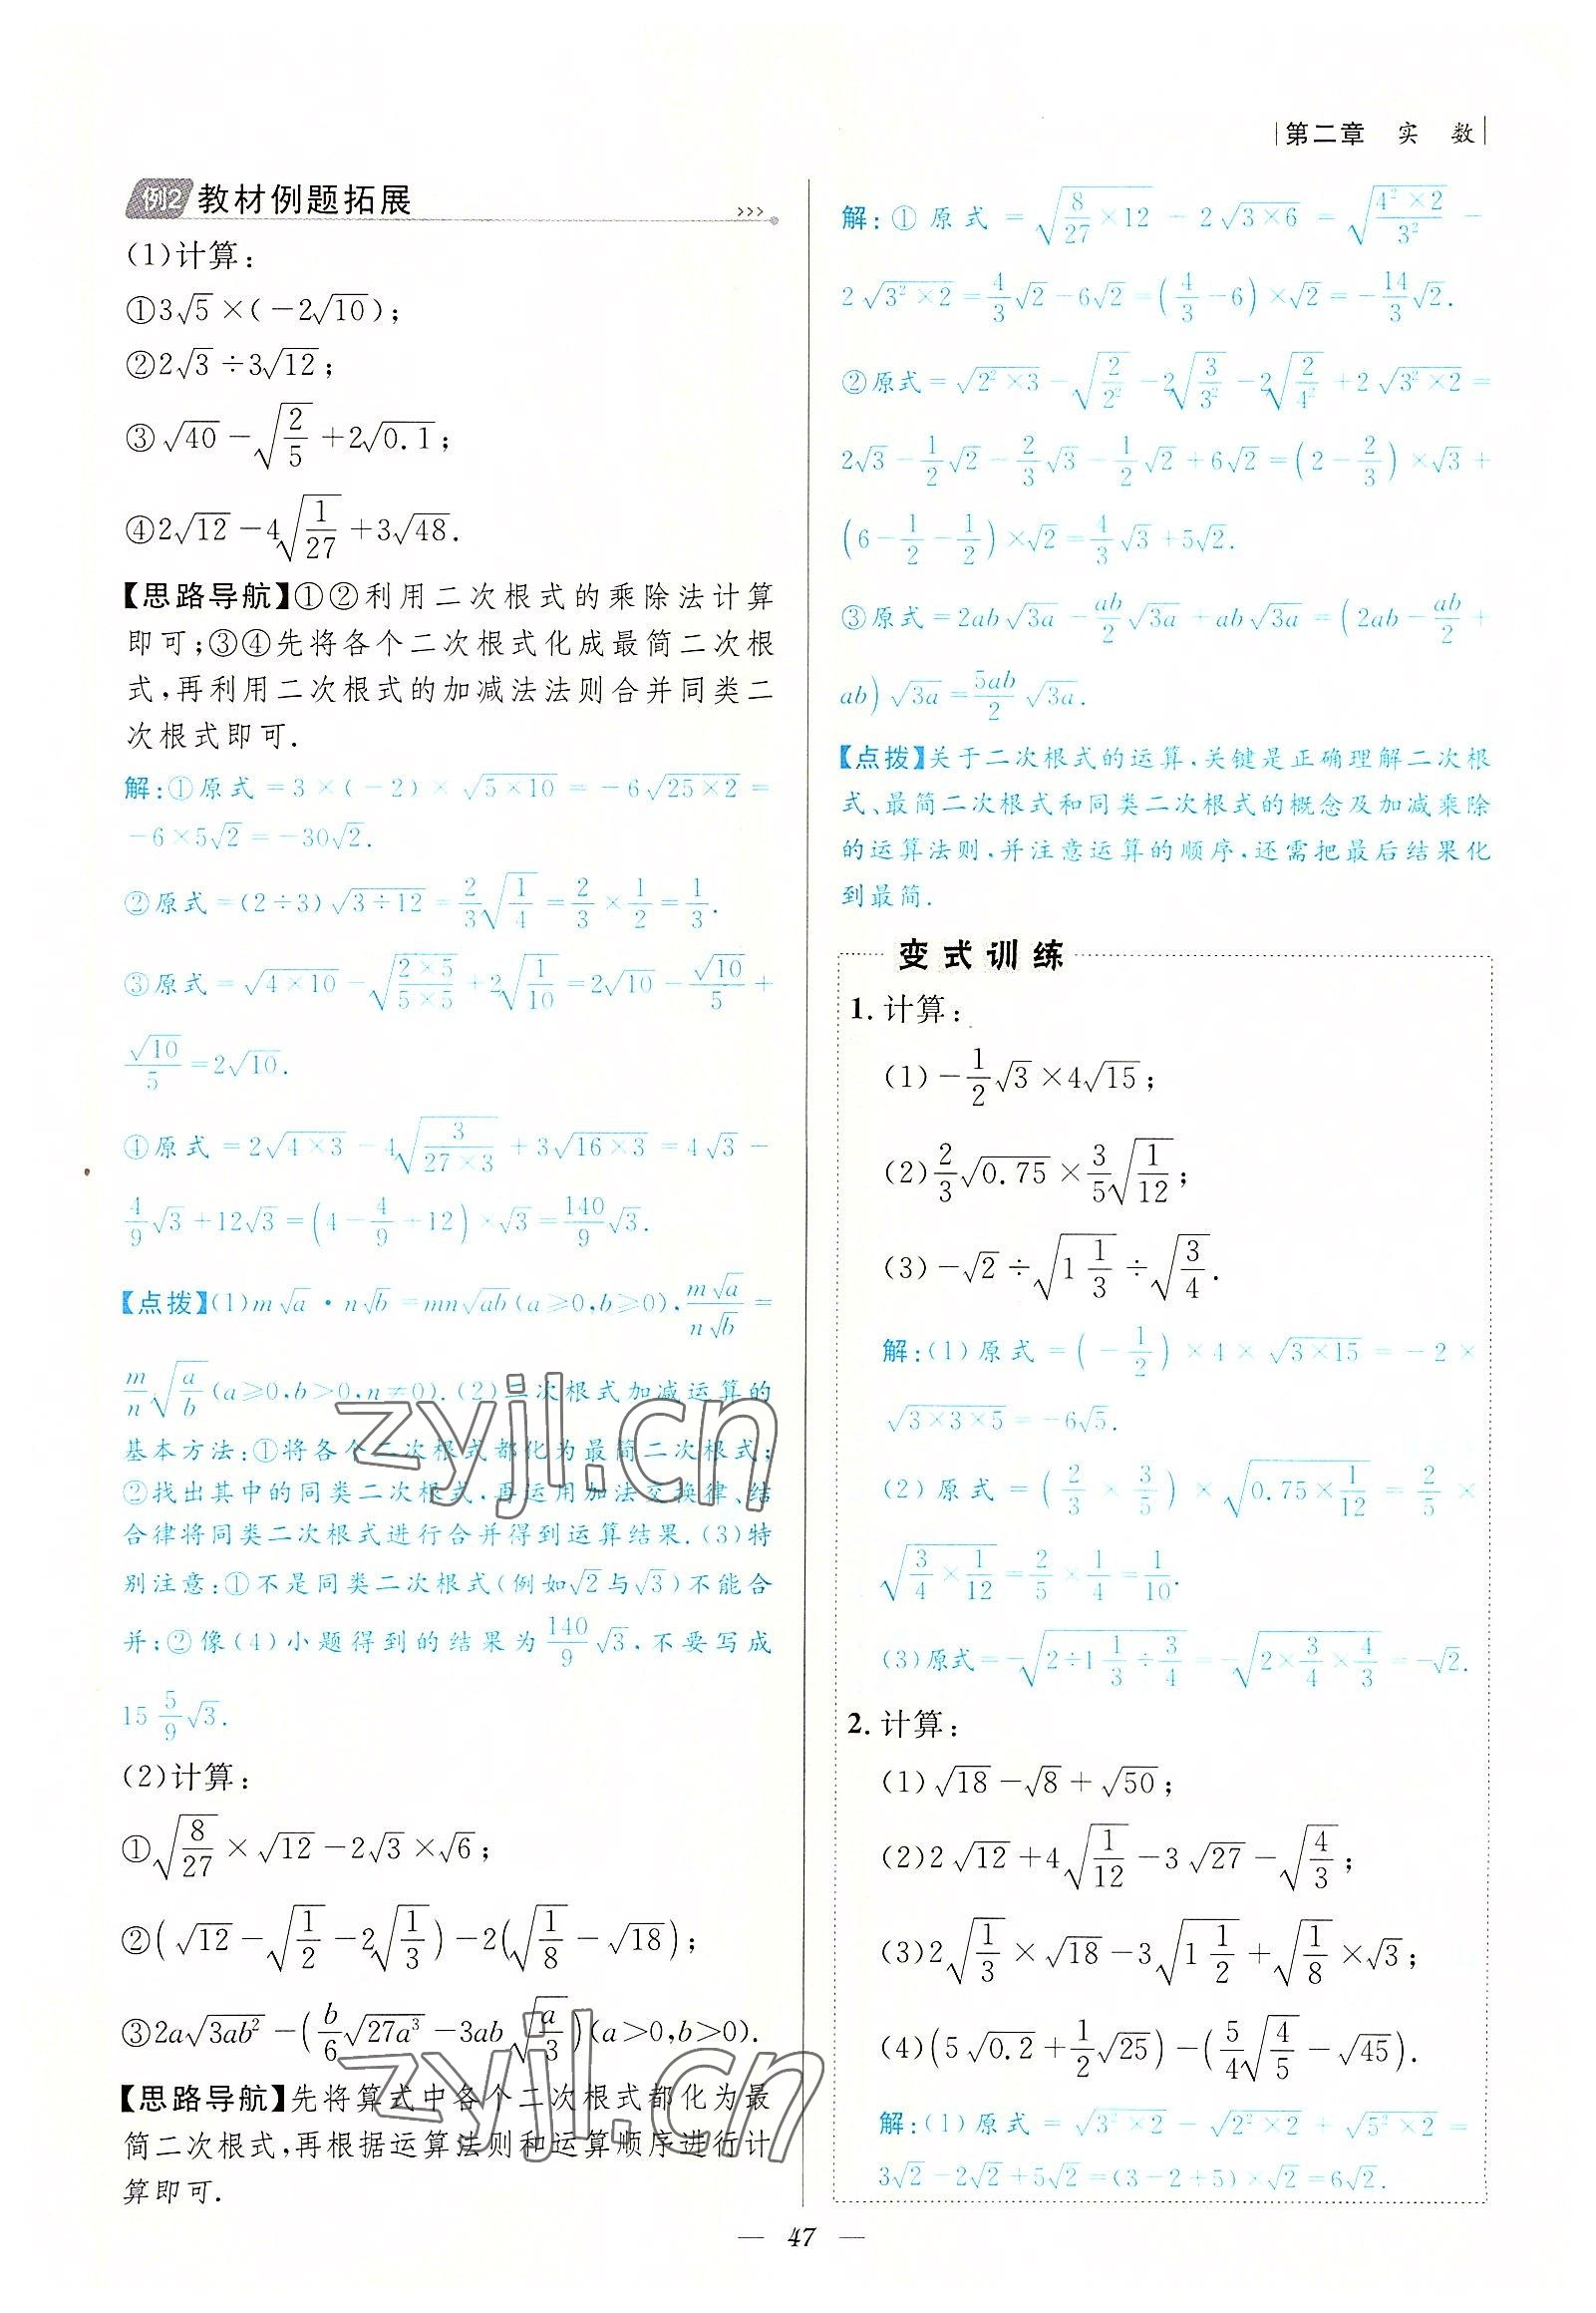 第二章 实 数
例2 教材例题拓展 >>>
(1)计算:
①3√5×(-2√10);
②2√3÷3√12;
③√40-√(2/5)+2√0.1;
④2√12-4√(1/27)+3√48.
【思路导航】①②利用二次根式的乘除法计算
即可;③④先将各个二次根式化成最简二次根
式,再利用二次根式的加减法法则合并同类二
次根式即可.
解:①原式=3×(-2)×√(5×10)=-6√(25×2)=
-6×5√2=-30√2.
②原式=(2÷3)√(3÷12)=2/3√(1/4)=2/3×1/2=1/3.
③原式=√(4×10)-√((2×5)/(5×5))+2√(1/10)=2√10-√10/5+
√10/5=2√10.
④原式=2√(4×3)-4√(3/(27×3))+3√(16×3)=4√3-
4/9√3+12√3=(4-4/9+12)×√3=140/9√3.
【点拨】(1)m√a·n√b=mn√ab(a≥0,b≥0),m√a/n√b=
m/n√(a/b)(a≥0,b>0,n≠0).(2)二次根式加减运算的
基本方法:①将各个二次根式都化为最简二次根式;
②找出其中的同类二次根式,再运用加法交换律、结
合律将同类二次根式进行合并得到运算结果.(3)特
别注意:①不是同类二次根式(例如√2与√3)不能合
并;②像(4)小题得到的结果为140/9√3,不要写成
15 5/9√3.
(2)计算:
①√(8/27)×√12-2√3×√6;
②(√12-√(1/2)-2√(1/3))-2(√(1/8)-√18);
③2a√(3ab²)-(b/6√(27a³)-3ab√(a/3))(a>0,b>0).
【思路导航】先将算式中各个二次根式都化为最
简二次根式,再根据运算法则和运算顺序进行计
算即可.
解:①原式=√(8/27×12)-2√(3×6)=√((4²×2)/3²)-
2√(3²×2)=4/3√2-6√2=(4/3-6)×√2=-14/3√2.
②原式=√(2²×3)-√(2/2²)-2√(3/3²)-2√(2/4²)+2√(3²×2)=
2√3-1/2√2-2/3√3-1/2√2+6√2=(2-2/3)×√3+
(6-1/2-1/2)×√2=4/3√3+5√2.
③原式=2ab√3a-ab/2√3a+ab√3a=(2ab-ab/2+
ab)√3a=5ab/2√3a.
【点拨】关于二次根式的运算,关键是正确理解二次根
式、最简二次根式和同类二次根式的概念及加减乘除
的运算法则,并注意运算的顺序,还需把最后结果化
到最简.
变式训练
1.计算:
(1)-1/2√3×4√15;
(2)2/3√0.75×3/5√(1/12);
(3)-√2÷√(1 1/3)÷√(3/4).
解:(1)原式=(-1/2)×4×√(3×15)=-2×
√(3×3×5)=-6√5.
(2)原式=(2/3×3/5)×√(0.75×1/12)=2/5×
√(3/4×1/12)=2/5×1/4=1/10.
(3)原式=-√(2÷1 1/3÷3/4)=-√(2×3/4×4/3)=-√2.
2.计算:
(1)√18-√8+√50;
(2)2√12+4√(1/12)-3√27-√(4/3);
(3)2√(1/3)×√18-3√(1 1/2)+√(1/8)×√3;
(4)(5√0.2+1/2√25)-(5/4√(4/5)-√45).
解:(1)原式=√(3²×2)-√(2²×2)+√(5²×2)=
3√2-2√2+5√2=(3-2+5)×√2=6√2.
— 47 —
zyjl.cn
zyjl.cn